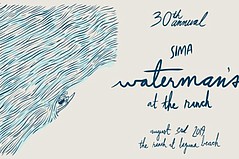 30th annual
SIMA
waterman's
at the ranch
august 3rd 2019
the ranch at laguna beach